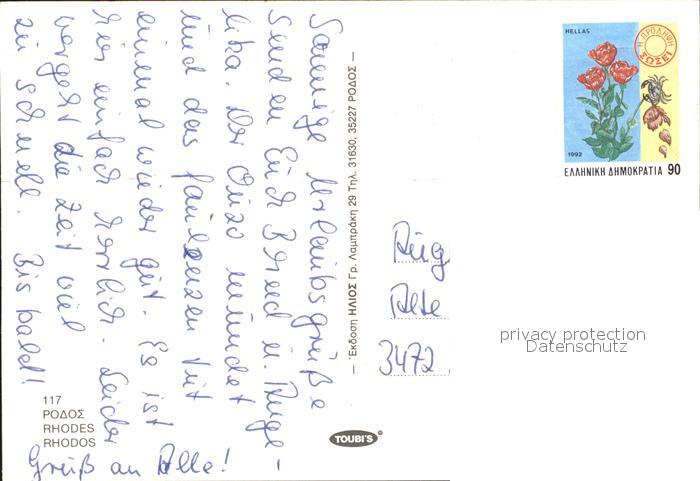 Sonnige Urlaubsgrüße
senden Euch Bernd u. Ange-
lika. Der Ouzo mundet
und das faulenzen tut
einmal wieder gut. Es ist
hier einfach herrlich. Leider
vergeht die Zeit viel
zu schnell. Bis bald!
Gruß an Alle!
117
ΡΟΔΟΣ
RHODES
RHODOS
— Έκδοση ΗΛΙΟΣ Γρ. Λαμπράκη 29 Τηλ. 31630, 35227 ΡΟΔΟΣ —
TOUBI'S
HELLAS
Η ΠΡΟΛΗΨΗ
ΣΩΖΕΙ
1992
ΕΛΛΗΝΙΚΗ ΔΗΜΟΚΡΑΤΙΑ 90
Rüg
Alte
3472
privacy protection
Datenschutz